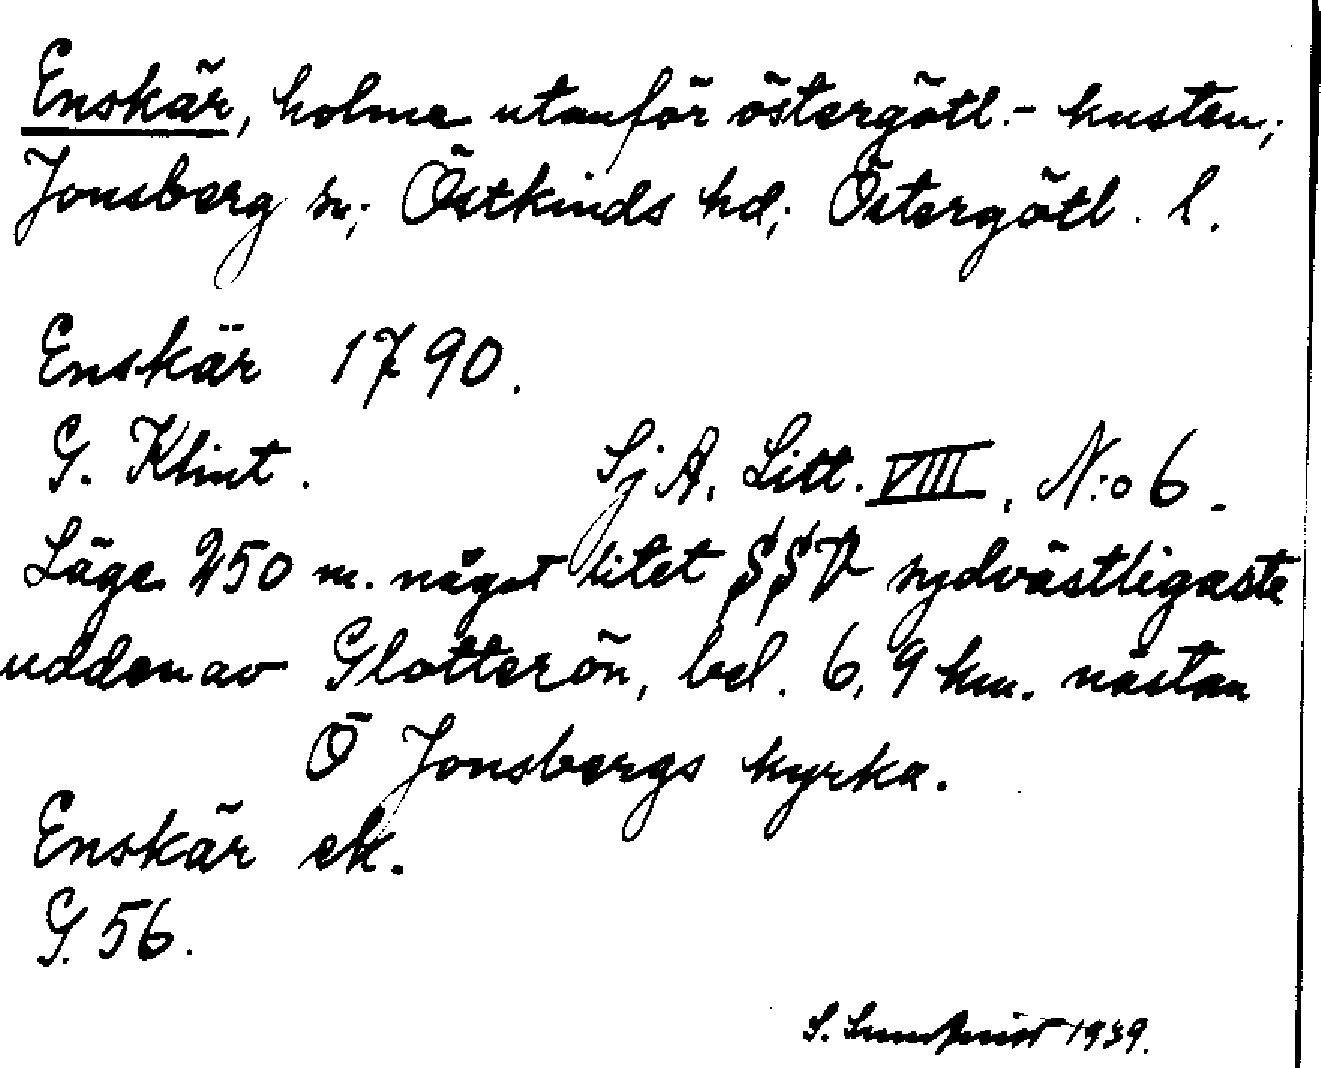 Enskär, holme utanför östergötl.- kusten;
Jonsberg sn; Östkinds hd; Östergötl. l.
Enskär 1790.
G. Klint. SjA. Litt. VIII, N:o 6.
Läge 250 m. något litet SSV sydvästligaste
udden av Glotterön, bel. 6,9 km. nästan
Ö Jonsbergs kyrka.
Enskär ek.
G. 56.
S. 1939.